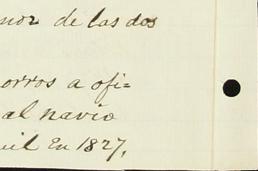 nor de las dos
orros a ofi=
al navio
uil En 1827,